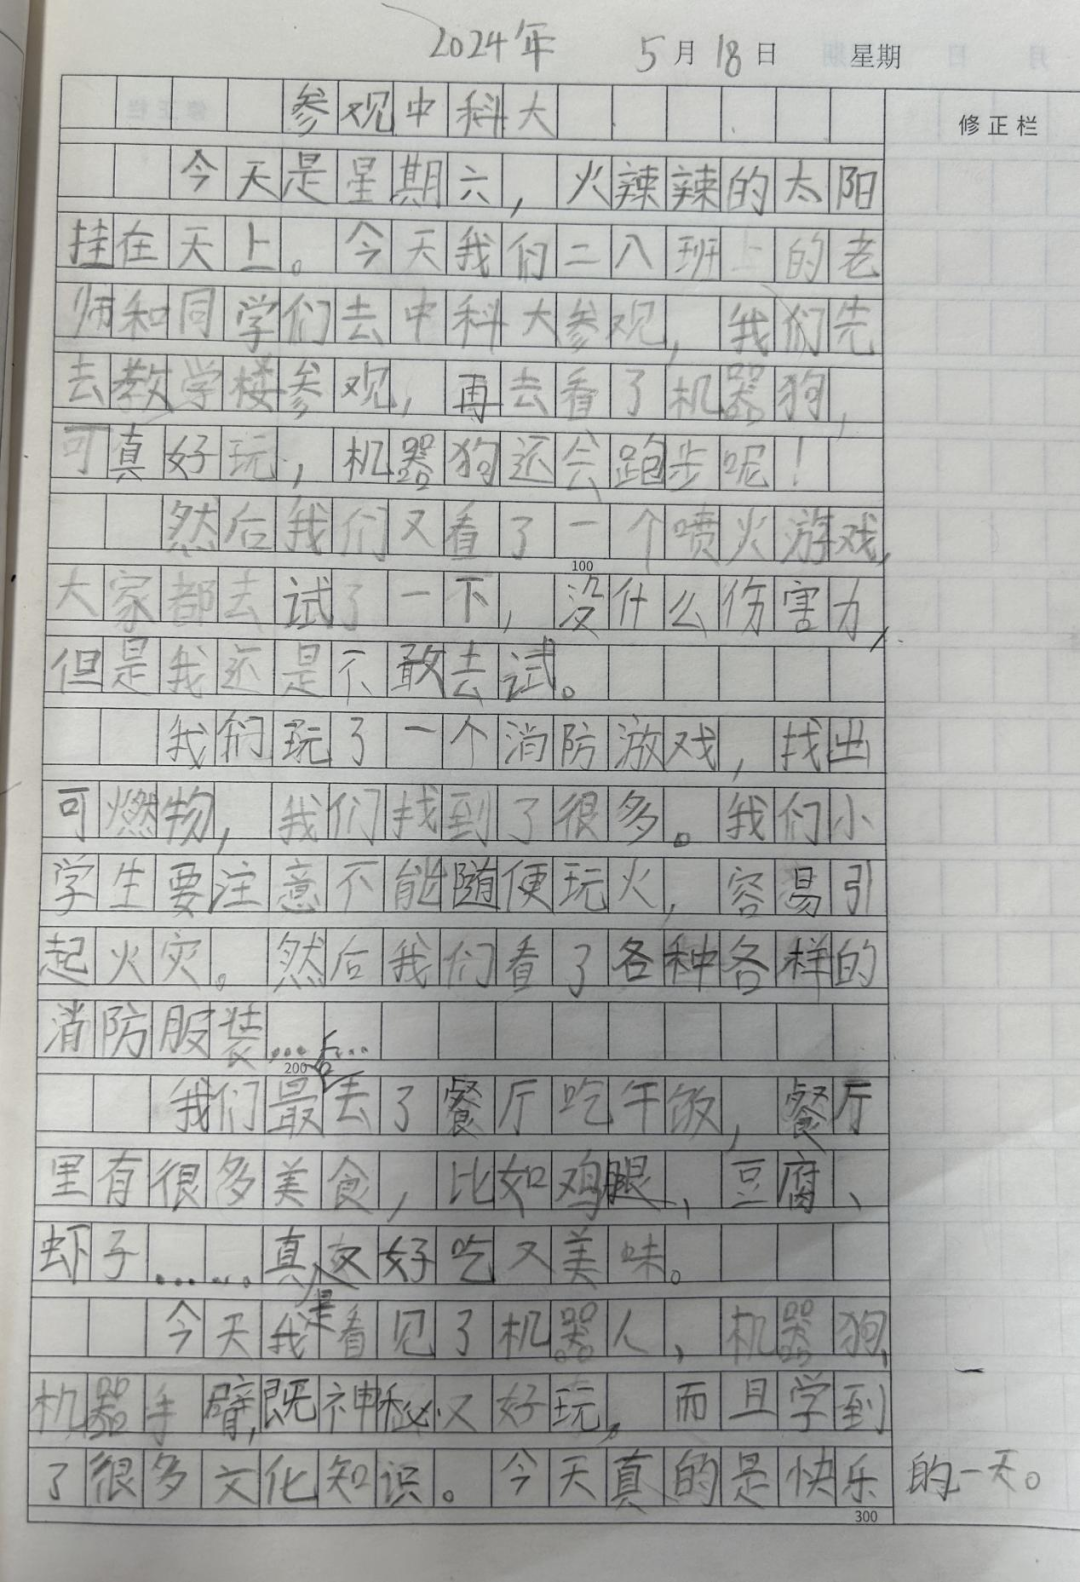 2024年 5月18日 星期
修正栏
参观中科大
今天是星期六，火辣辣的太阳
挂在天上。今天我们二八班上的老
师和同学们去中科大参观，我们先
去教学楼参观，再去看了机器狗，
可真好玩，机器狗还会跑步呢！
然后我们又看了一个喷火游戏，
100
大家都去试了一下，没什么伤害力，
但是我还是不敢去试。
我们玩了一个消防游戏，找出
可燃物，我们找到了很多。我们小
学生要注意不能随便玩火，容易引
起火灾。然后我们看了各种各样的
消防服装……
200
我们最后去了餐厅吃午饭，餐厅
里有很多美食，比如鸡腿、豆腐、
虾子……真是又好吃又美味。
今天我看见了机器人、机器狗、
机器手臂，既神秘又好玩，而且学到
了很多文化知识。今天真的是快乐的一天。
300